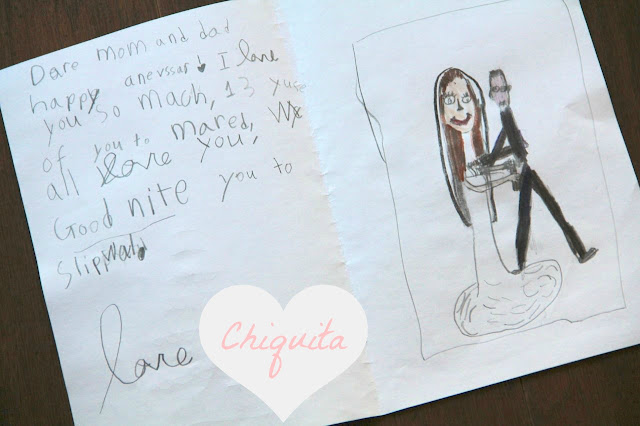 Dare mom and dad
happy anevssar I love
you so mach, 13 yuse
of you to mared, We
all love you,
Good nite you to
Slipwald
love
Chiquita